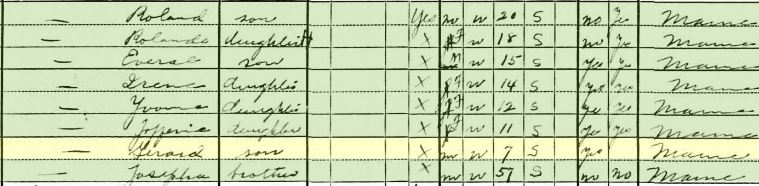 — Roland son Yes m w 20 S no Yes Maine
— Rolande daughter X F w 18 S no Yes Maine
— son X M w 15 S Yes Yes Maine
— Irene daughter X F w 14 S Yes Yes Maine
— Yvonne daughter X F w 12 S Yes Yes Maine
— daughter X F w 11 S Yes Yes Maine
— Gerard son X m w 7 S Yes Maine
— Joseph brother X m w 57 S no no Maine